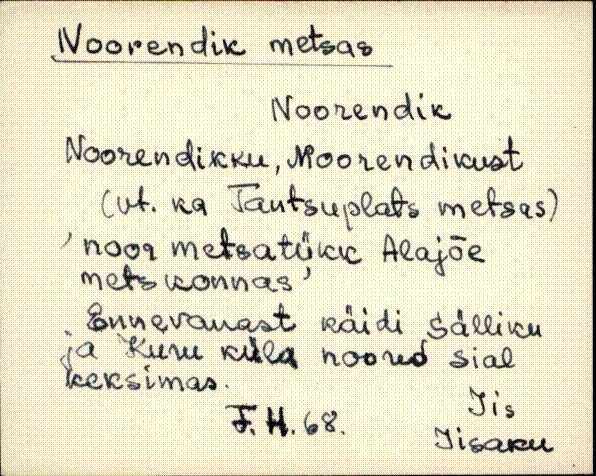 Noorendik metsas
Noorendik
Noorendikku, Noorendikust
(vt. ka Tantsuplats metsas)
'noor metsatükk Alajõe
metskonnas'
Ennevanast käidi Sälliku
ja Kuru küla noored sial
keksimas.
Iis
F.H. 68.
Iisaku